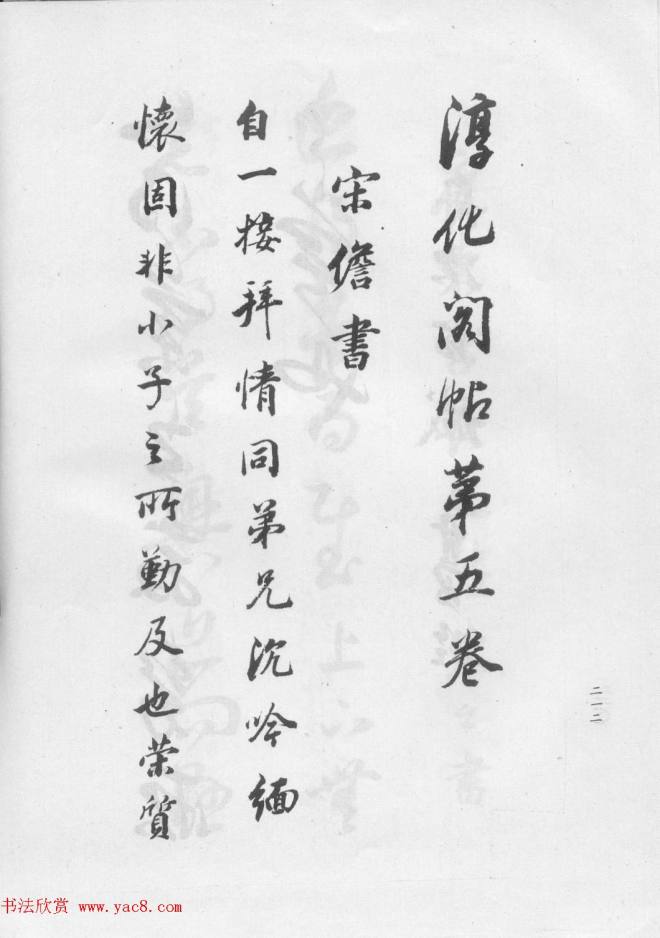 淳化阁帖苐五卷
宋儋書
自一接拜情同弟兄沉吟緬
懷固非小子之所勤及也荣質
二一二
书法欣赏 www.yac8.com